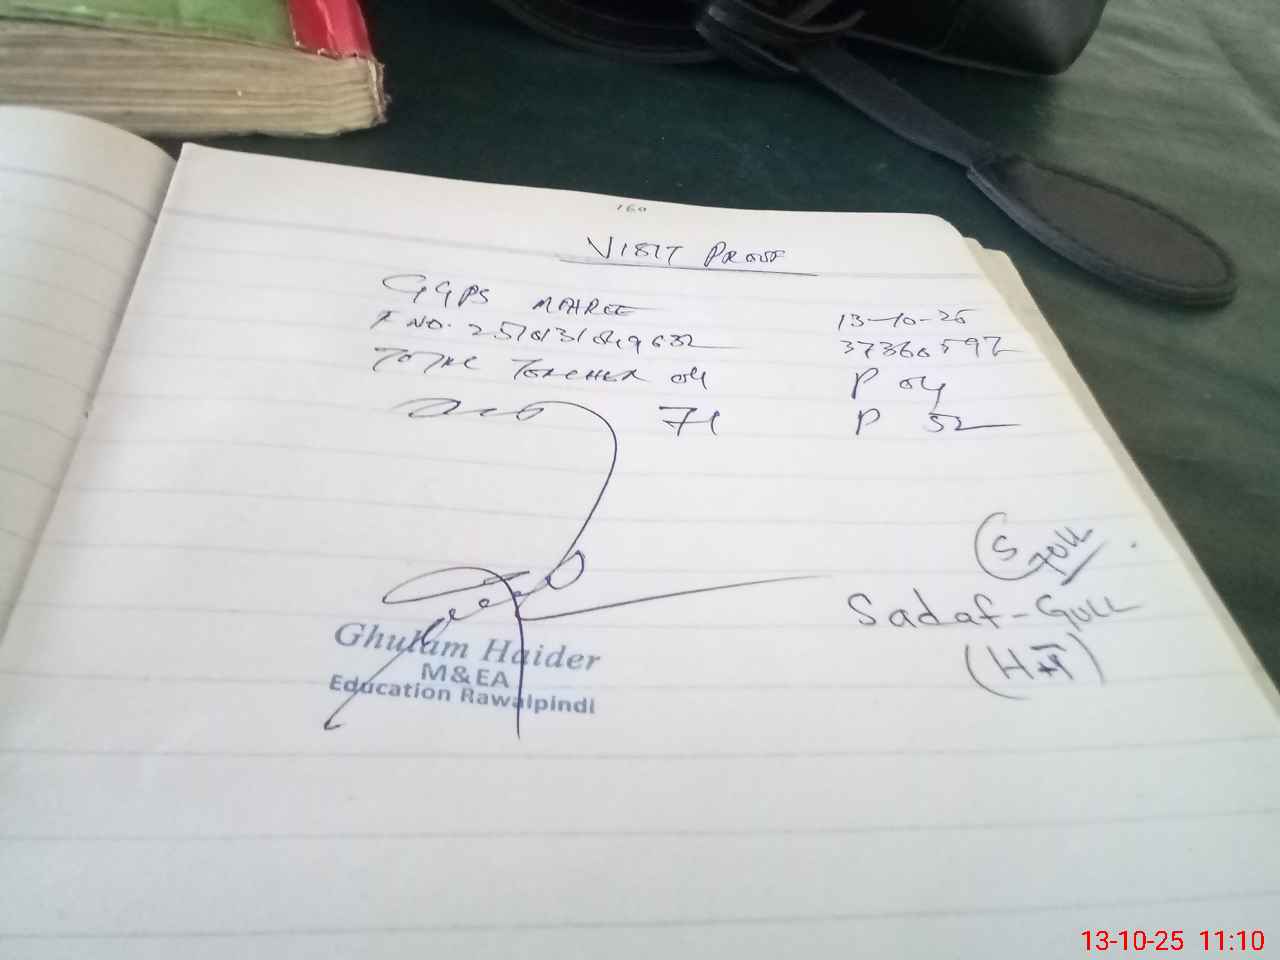 160
VISIT PROOF
GGPS MAHREE 13-10-25
F NO. 37360597
TOTAL TEACHER 04 P 04
71 P 52
S Gull
Sadaf-Gull
(HT)
Ghulam Haider
M&EA
Education Rawalpindi
13-10-25 11:10